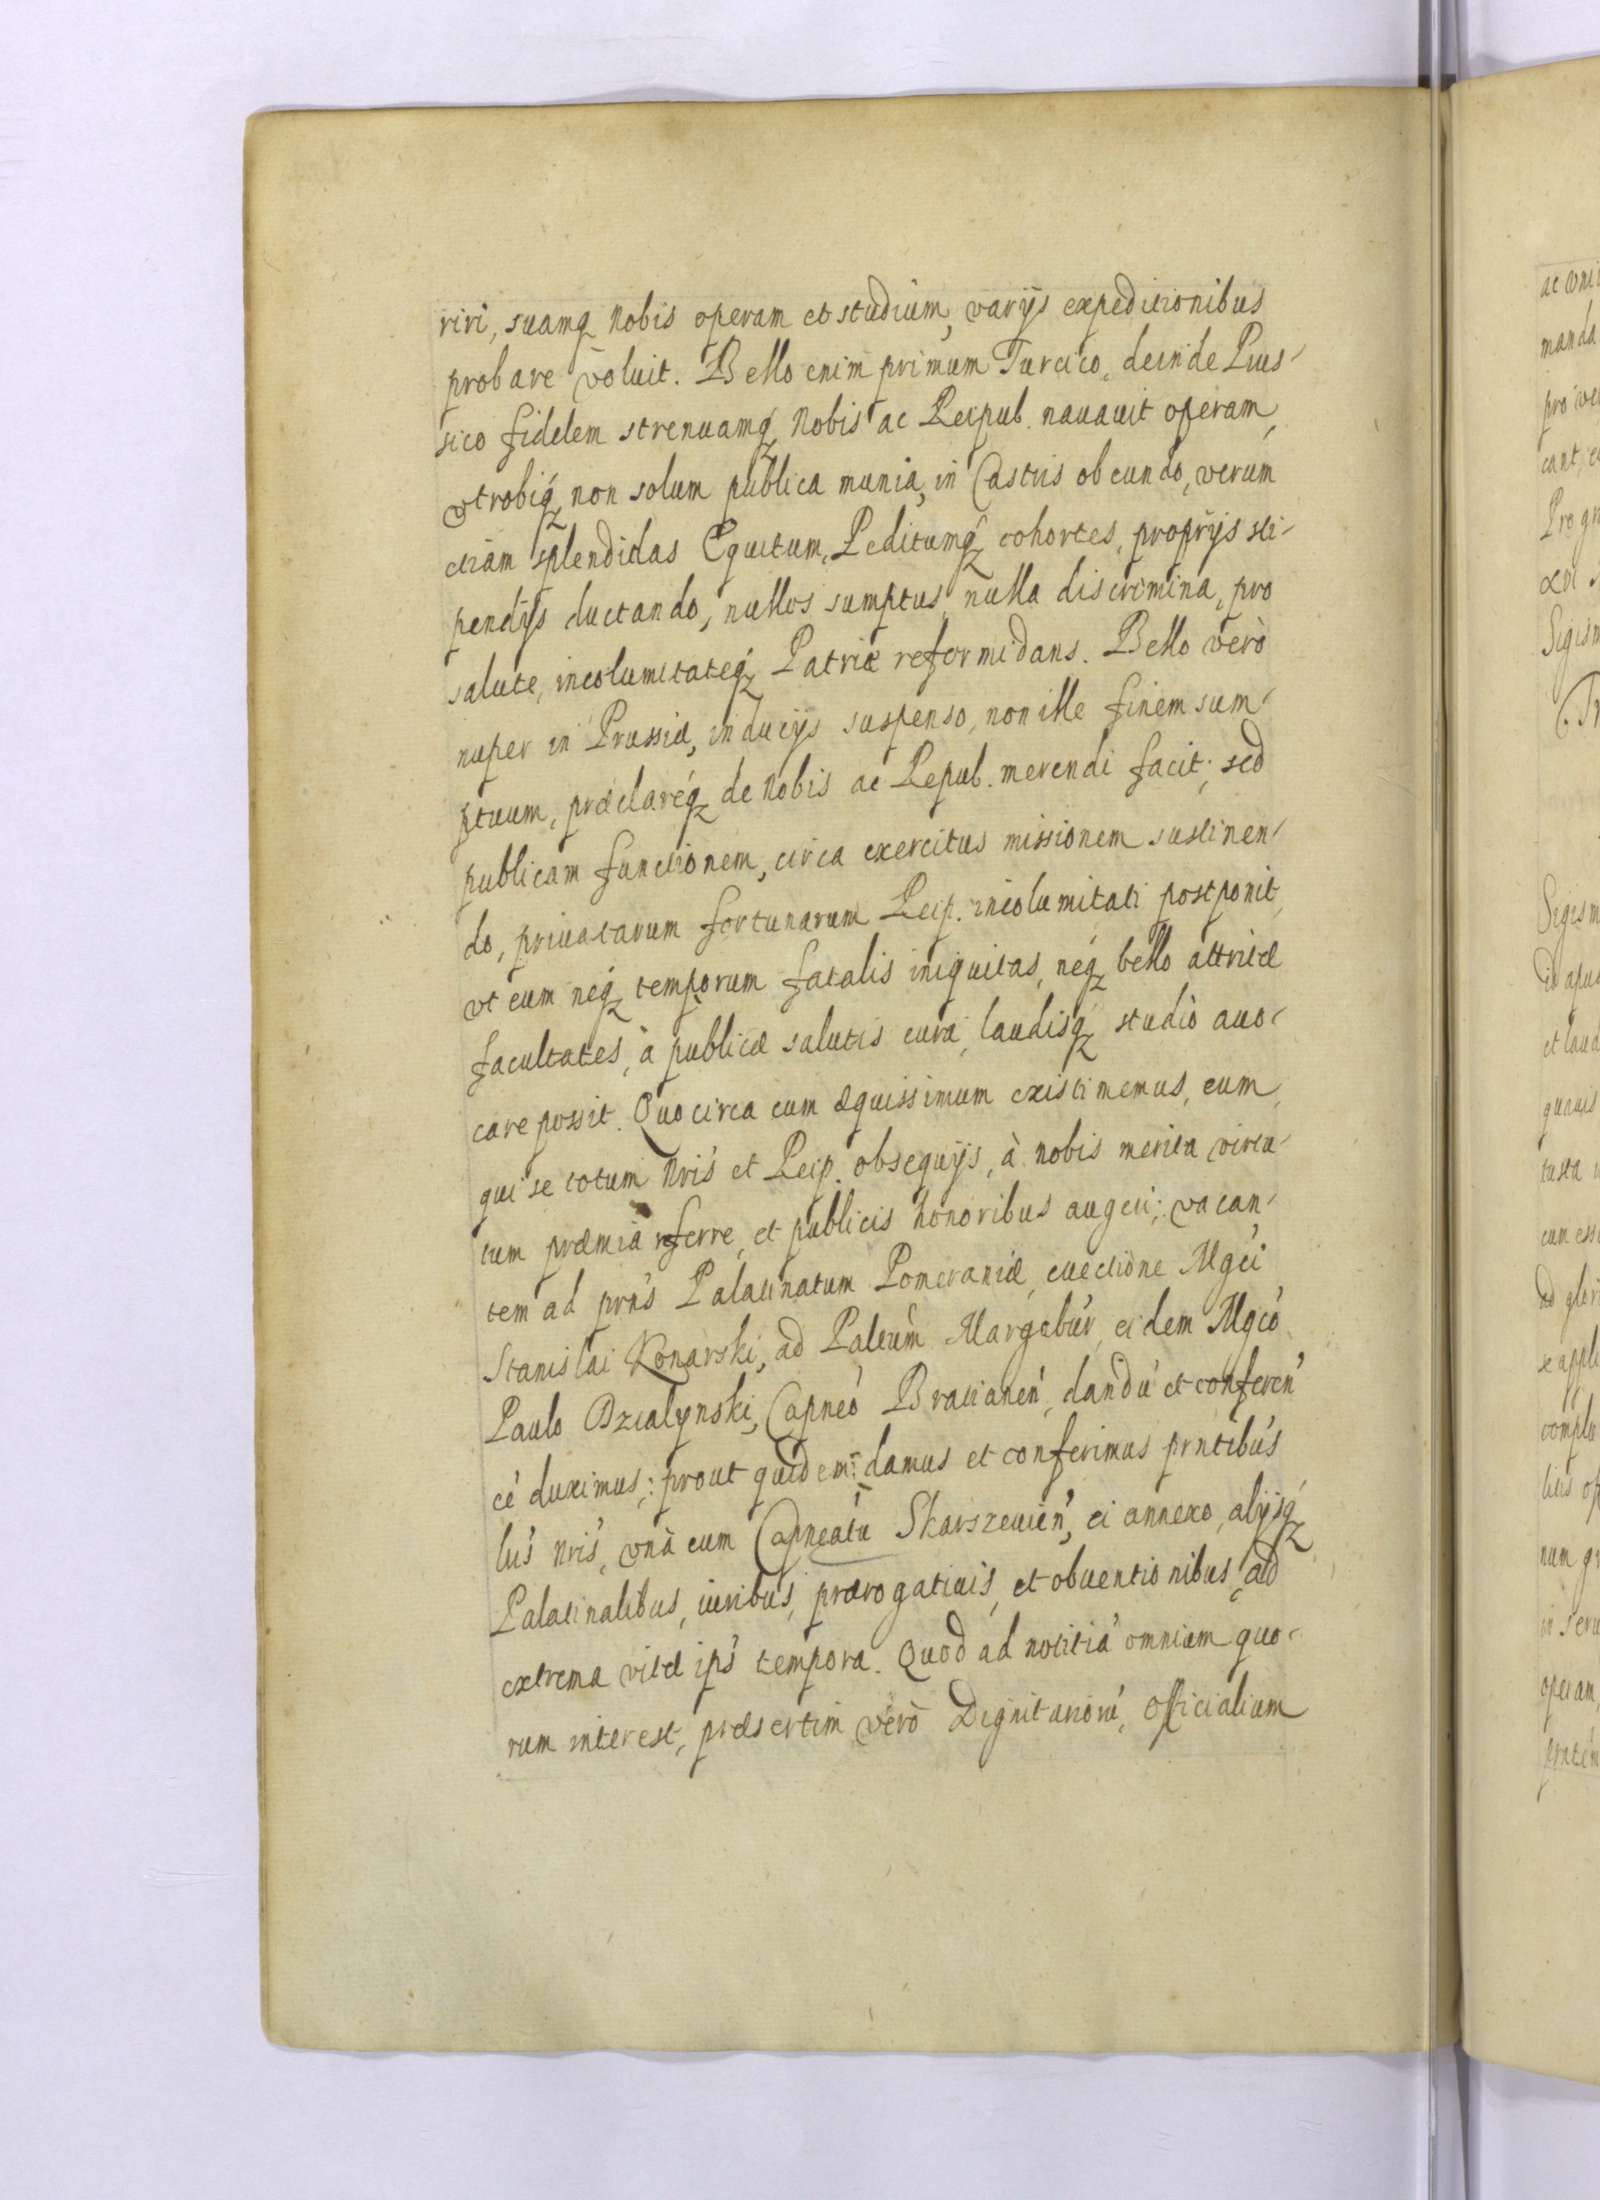 riri, suamq́ Nobis operam et studium, varijs expeditionibus
probare voluit. Bello enim primum Turcico, deinde Prus-
sico fidelem strenuamq́ Nobis ac Reipub. nauauit operam,
vtrobiq́ non solum publica munia, in Castris obeundo, verum
etiam splendidas Equitum, Peditumq́ cohortes, proprijs sti-
pendijs ductando, nullos sumptus, nulla discrimina, pro
salute, incolumitateq́ Patriæ reformidans. Bello verò
nuper in Prussia, inducijs suspenso, non ille finem sum-
ptuum, præclaréq́ de Nobis ac Repub. merendi facit; sed
publicam functionem, circa exercitus missionem sustinen-
do, priuatarum fortunarum Reip. incolumitati postponit,
vt eum neq́ temporum fatalis iniquitas, neq́ bello attritæ
facultates, à publicæ salutis cura, laudisq́ studio auo-
care possit. Quocirca cum æquissimum existimemus, eum,
qui se totum Nris et Reip. obsequijs, à nobis merita virtu-
tum præmia referre, et publicis honoribus augeri; vacan-
tem ad prńs Palatinatum Pomeraniæ, euectione Mgci
Stanislai Konarski, ad Paltum Margebur, eidem Mgco
Paulo Dzialynski, Capneo Bratianen, dandu et conferen
cé duximus; prout quidem damus et conferimus prntibus
lris nris, vnà cum Capneatu Skarszeuien, ei annexo, alijsq́
Palatinalibus, iuribus, prærogatiuis, et obuentionibus, ad
extrema vitæ ips tempora. Quod ad notitia omnium quo-
rum interest, præsertim verò Dignitarioru, Officialium
ac
manda
pro
cant,
Sigism
Sigism
quauis
cum
ad
operam,